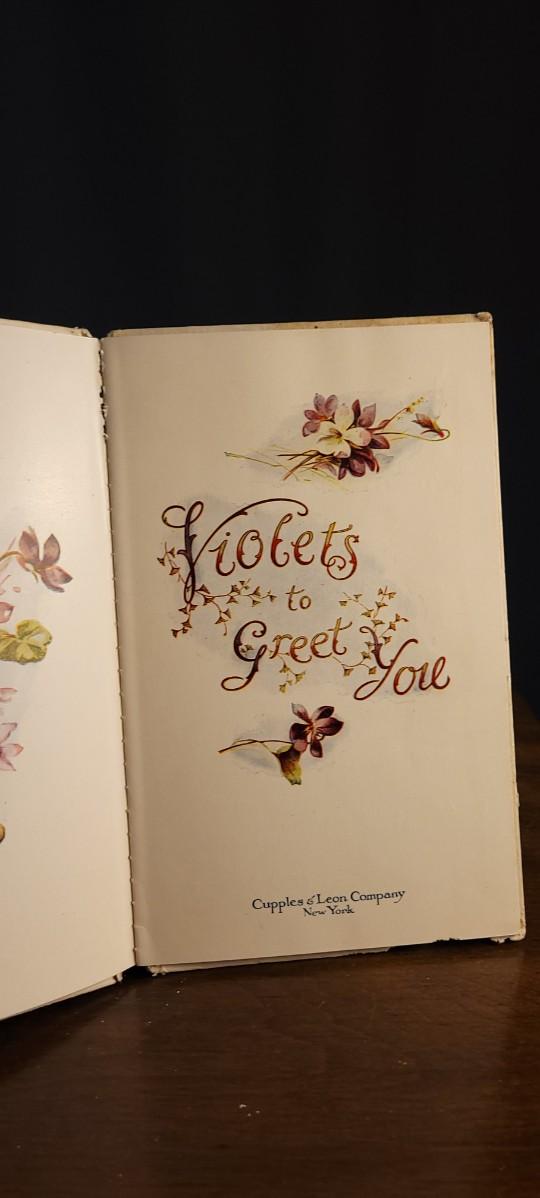 Violets
to
Greet You
Cupples & Leon Company
New York